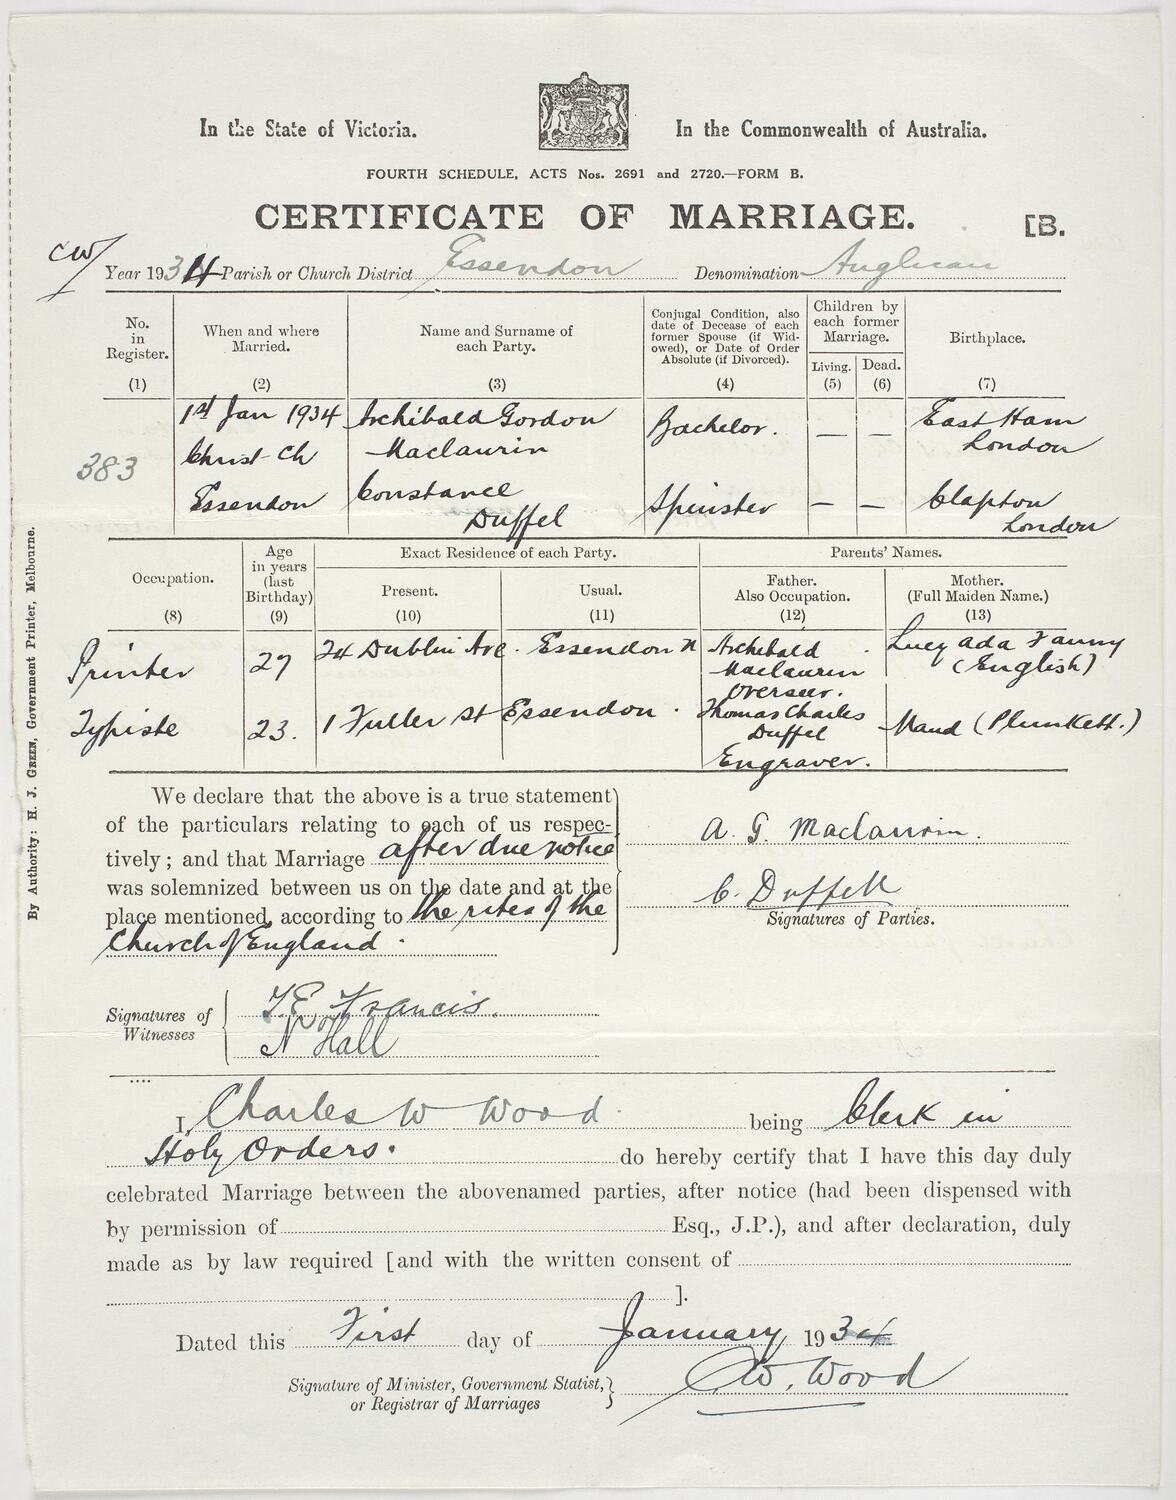 In the State of Victoria. In the Commonwealth of Australia.
FOURTH SCHEDULE, ACTS Nos. 2691 and 2720.—FORM B.
CERTIFICATE OF MARRIAGE. [B.
CW
Year 1934 Parish or Church District Essendon Denomination Anglican
No. in Register. (1)
When and where Married. (2)
Name and Surname of each Party. (3)
Conjugal Condition, also date of Decease of each former Spouse (if Widowed), or Date of Order Absolute (if Divorced). (4)
Children by each former Marriage.
Living. (5) Dead. (6)
Birthplace. (7)
383
1st Jan 1934 Archibald Gordon Bachelor. — — East Ham
Christ Ch Maclaurin London
Essendon Constance Spinster — — Clapton
Duffel London
Occupation. (8)
Age in years (last Birthday) (9)
Exact Residence of each Party.
Present. (10) Usual. (11)
Parents' Names.
Father. Also Occupation. (12)
Mother. (Full Maiden Name.) (13)
Printer 27 24 Dublin Ave. Essendon N Archibald Maclaurin Overseer. Lucy Ada Fanny (English)
Typiste 23. 1 Fuller St Essendon. Thomas Charles Duffel Engraver. Maud (Plunkett.)
We declare that the above is a true statement
of the particulars relating to each of us respec-
tively; and that Marriage after due notice
was solemnized between us on the date and at the
place mentioned, according to the rites of the
Church of England.
A. G. Maclaurin.
C. Duffell
Signatures of Parties.
Signatures of Witnesses
T.E. Francis.
N Hall
I, Charles W Wood being Clerk in
Holy Orders. do hereby certify that I have this day duly
celebrated Marriage between the abovenamed parties, after notice (had been dispensed with
by permission of Esq., J.P.), and after declaration, duly
made as by law required [and with the written consent of
].
Dated this First day of January 1934
Signature of Minister, Government Statist,
or Registrar of Marriages
CW. Wood
By Authority: H. J. GREEN, Government Printer, Melbourne.